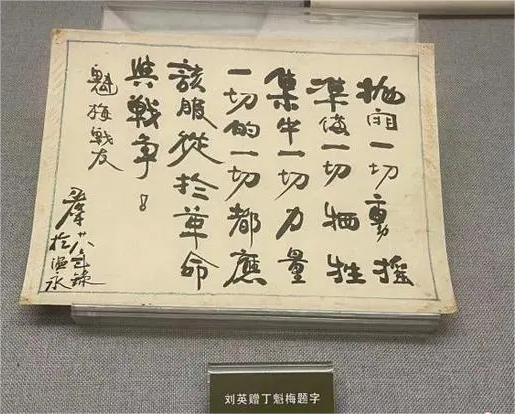 抛開一切動搖
準備一切牺牲
集中一切力量
一切的一切都應
該服從於革命
與戰争！
魁梅戰友
群 廿八
於温永
刘英赠丁魁梅题字